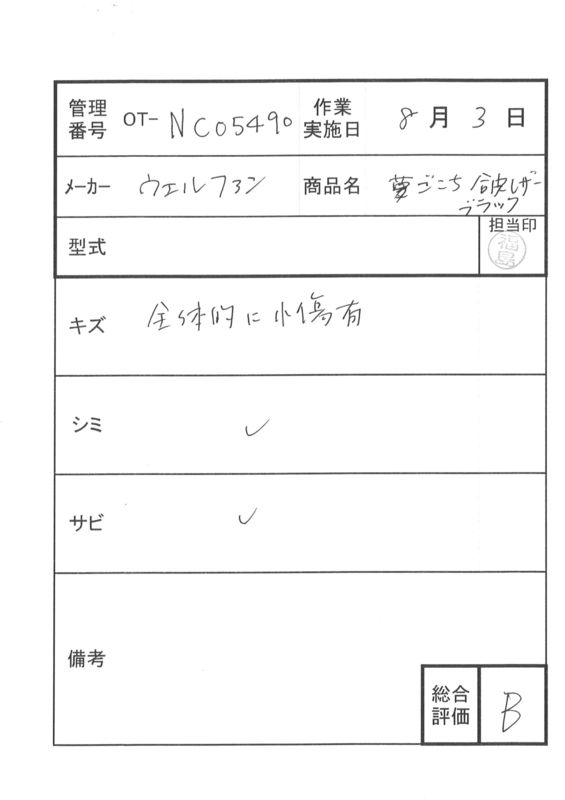 管理番号 OT- NC05490 作業実施日 8月3日
メーカー ウェルファン 商品名 夢ごこち 合皮レザー
ブラック
型式 担当印
福島
キズ 全体的に小傷有
シミ ✓
サビ ✓
備考
総合評価 B